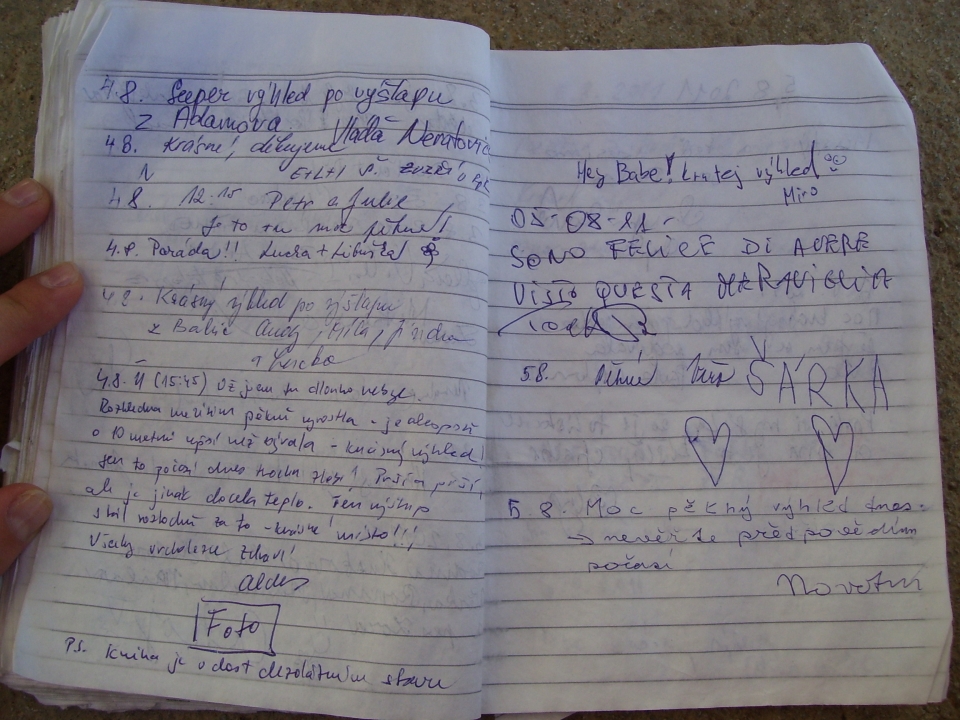 4.8. Super výhled po výšlapu
z Adamova Vlaďa Neratovic
4.8. Krásné, děkujeme
N
4.8. 12.15 Petr a Julie
Je to tu moc pěkné!
4.8. Paráda!! Lucka + Libuška
4.8. Krásný výhled po výšlapu
z Babic Andy, Míla,
a Lucka
4.8. 11 (15:45) Už jsem tu dlouho nebyl.
Rozhledna mezitím pěkně vyrostla - je alespoň
o 10 metrů vyšší než bývala - krásný výhled!
Jen to počasí dnes trochu zlobí! Prší a prší,
ale je jinak docela teplo. Ten výstup
stál rozhodně za to - krásné místo!!!
Všechny vrcholaře zdraví!
aldes
Foto
P.S. Kniha je v dost dezolátním stavu
Hey Babe! krutej výhled
Miro
05-08-11-
SONO FELICE DI AVERE
VISTO QUESTA MERAVIGLIA
5.8. Pěkné ŠÁRKA
5.8. Moc pěkný výhled dnes.
→ nevěřte předpovědím
počasí
Novotní